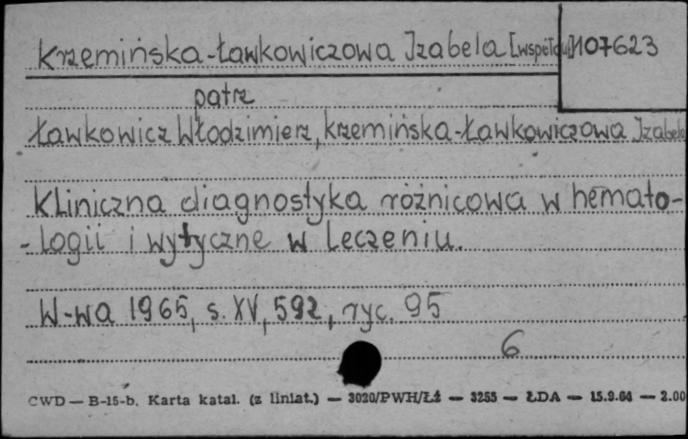 Krzemińska-Ławkowiczowa Izabela [współau] 107623
patrz
Ławkowicz Włodzimierz, Krzemińska-Ławkowiczowa Izabela
Kliniczna diagnostyka różnicowa w hemato-
-logii i wytyczne w leczeniu.
W-wa 1965, s. XV, 592, ryc. 95
6
CWD — B-15-b. Karta katal. (z liniat.) — 3020/PWH/Łź — 3255 — ŁDA — 15.9.64 — 2.00